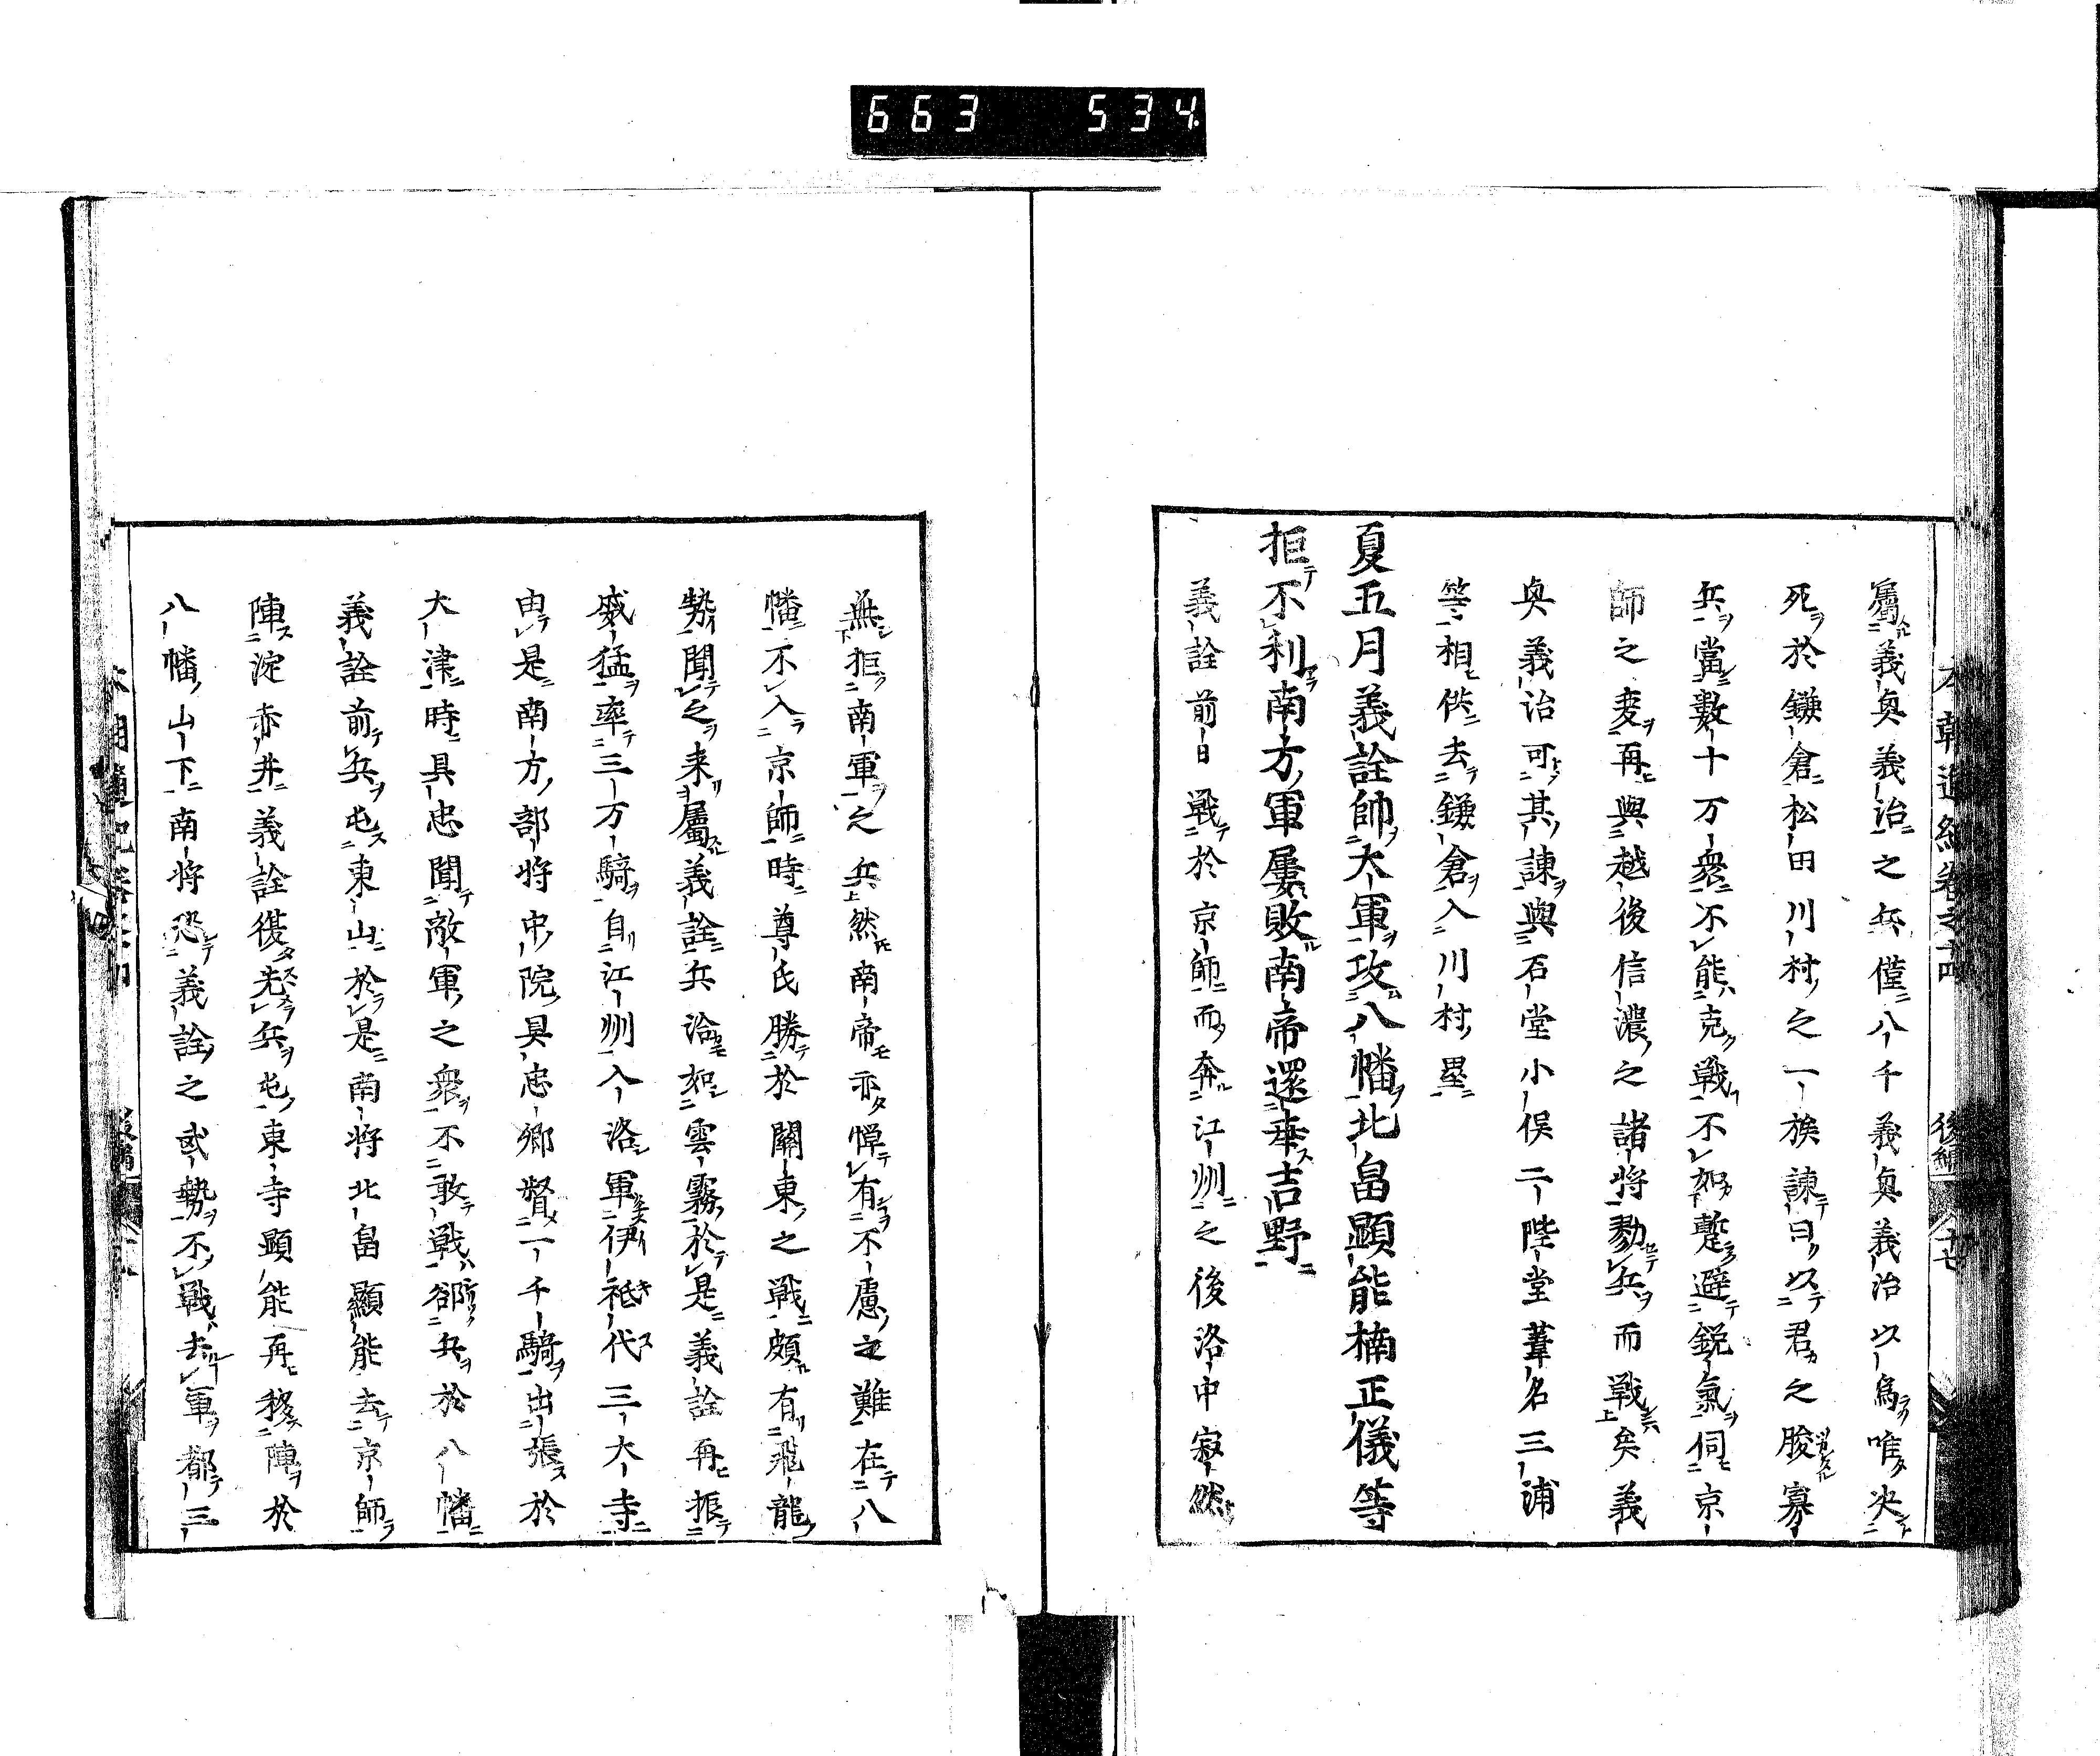 663 534
屬義奥義治之兵僅八千義奥義治以為唯决
死於鎌倉松田川村之一族諌曰以君之𦙾寡
兵當數十万衆不能克戰不如蹔避鋭氣伺京
師之変再與越後信濃之諸將勠兵而戰矣義
奥義治可其諌與石堂小俣二階堂葦名三浦
等相供去鎌倉入川村壘
夏五月義詮帥大軍攻八幡北畠顯能楠正儀等
拒不利南方軍屢敗南帝還幸吉野
義詮前日戰於京師而奔江州之後洛中寂然
無拒南軍之兵然南帝亦憚有不慮之難在八
幡不入京師時尊氏勝於關東之戰頗有飛龍
勢聞之来屬義詮兵洽如雲霧於是義詮再振
威猛率三万騎自江州入洛軍伊祗代三大寺
由是南方部将中院具忠卿督一千騎出張於
大津時具忠聞敵軍之衆不敢戰郤兵於八幡
義詮前兵屯東山於是南将北畠顯能去京師
陣淀赤井義詮復先兵屯東寺顯能再移陣於
八幡山下南将恐義詮之武勢不戰去軍都三
本朝通紀卷之十四 後編